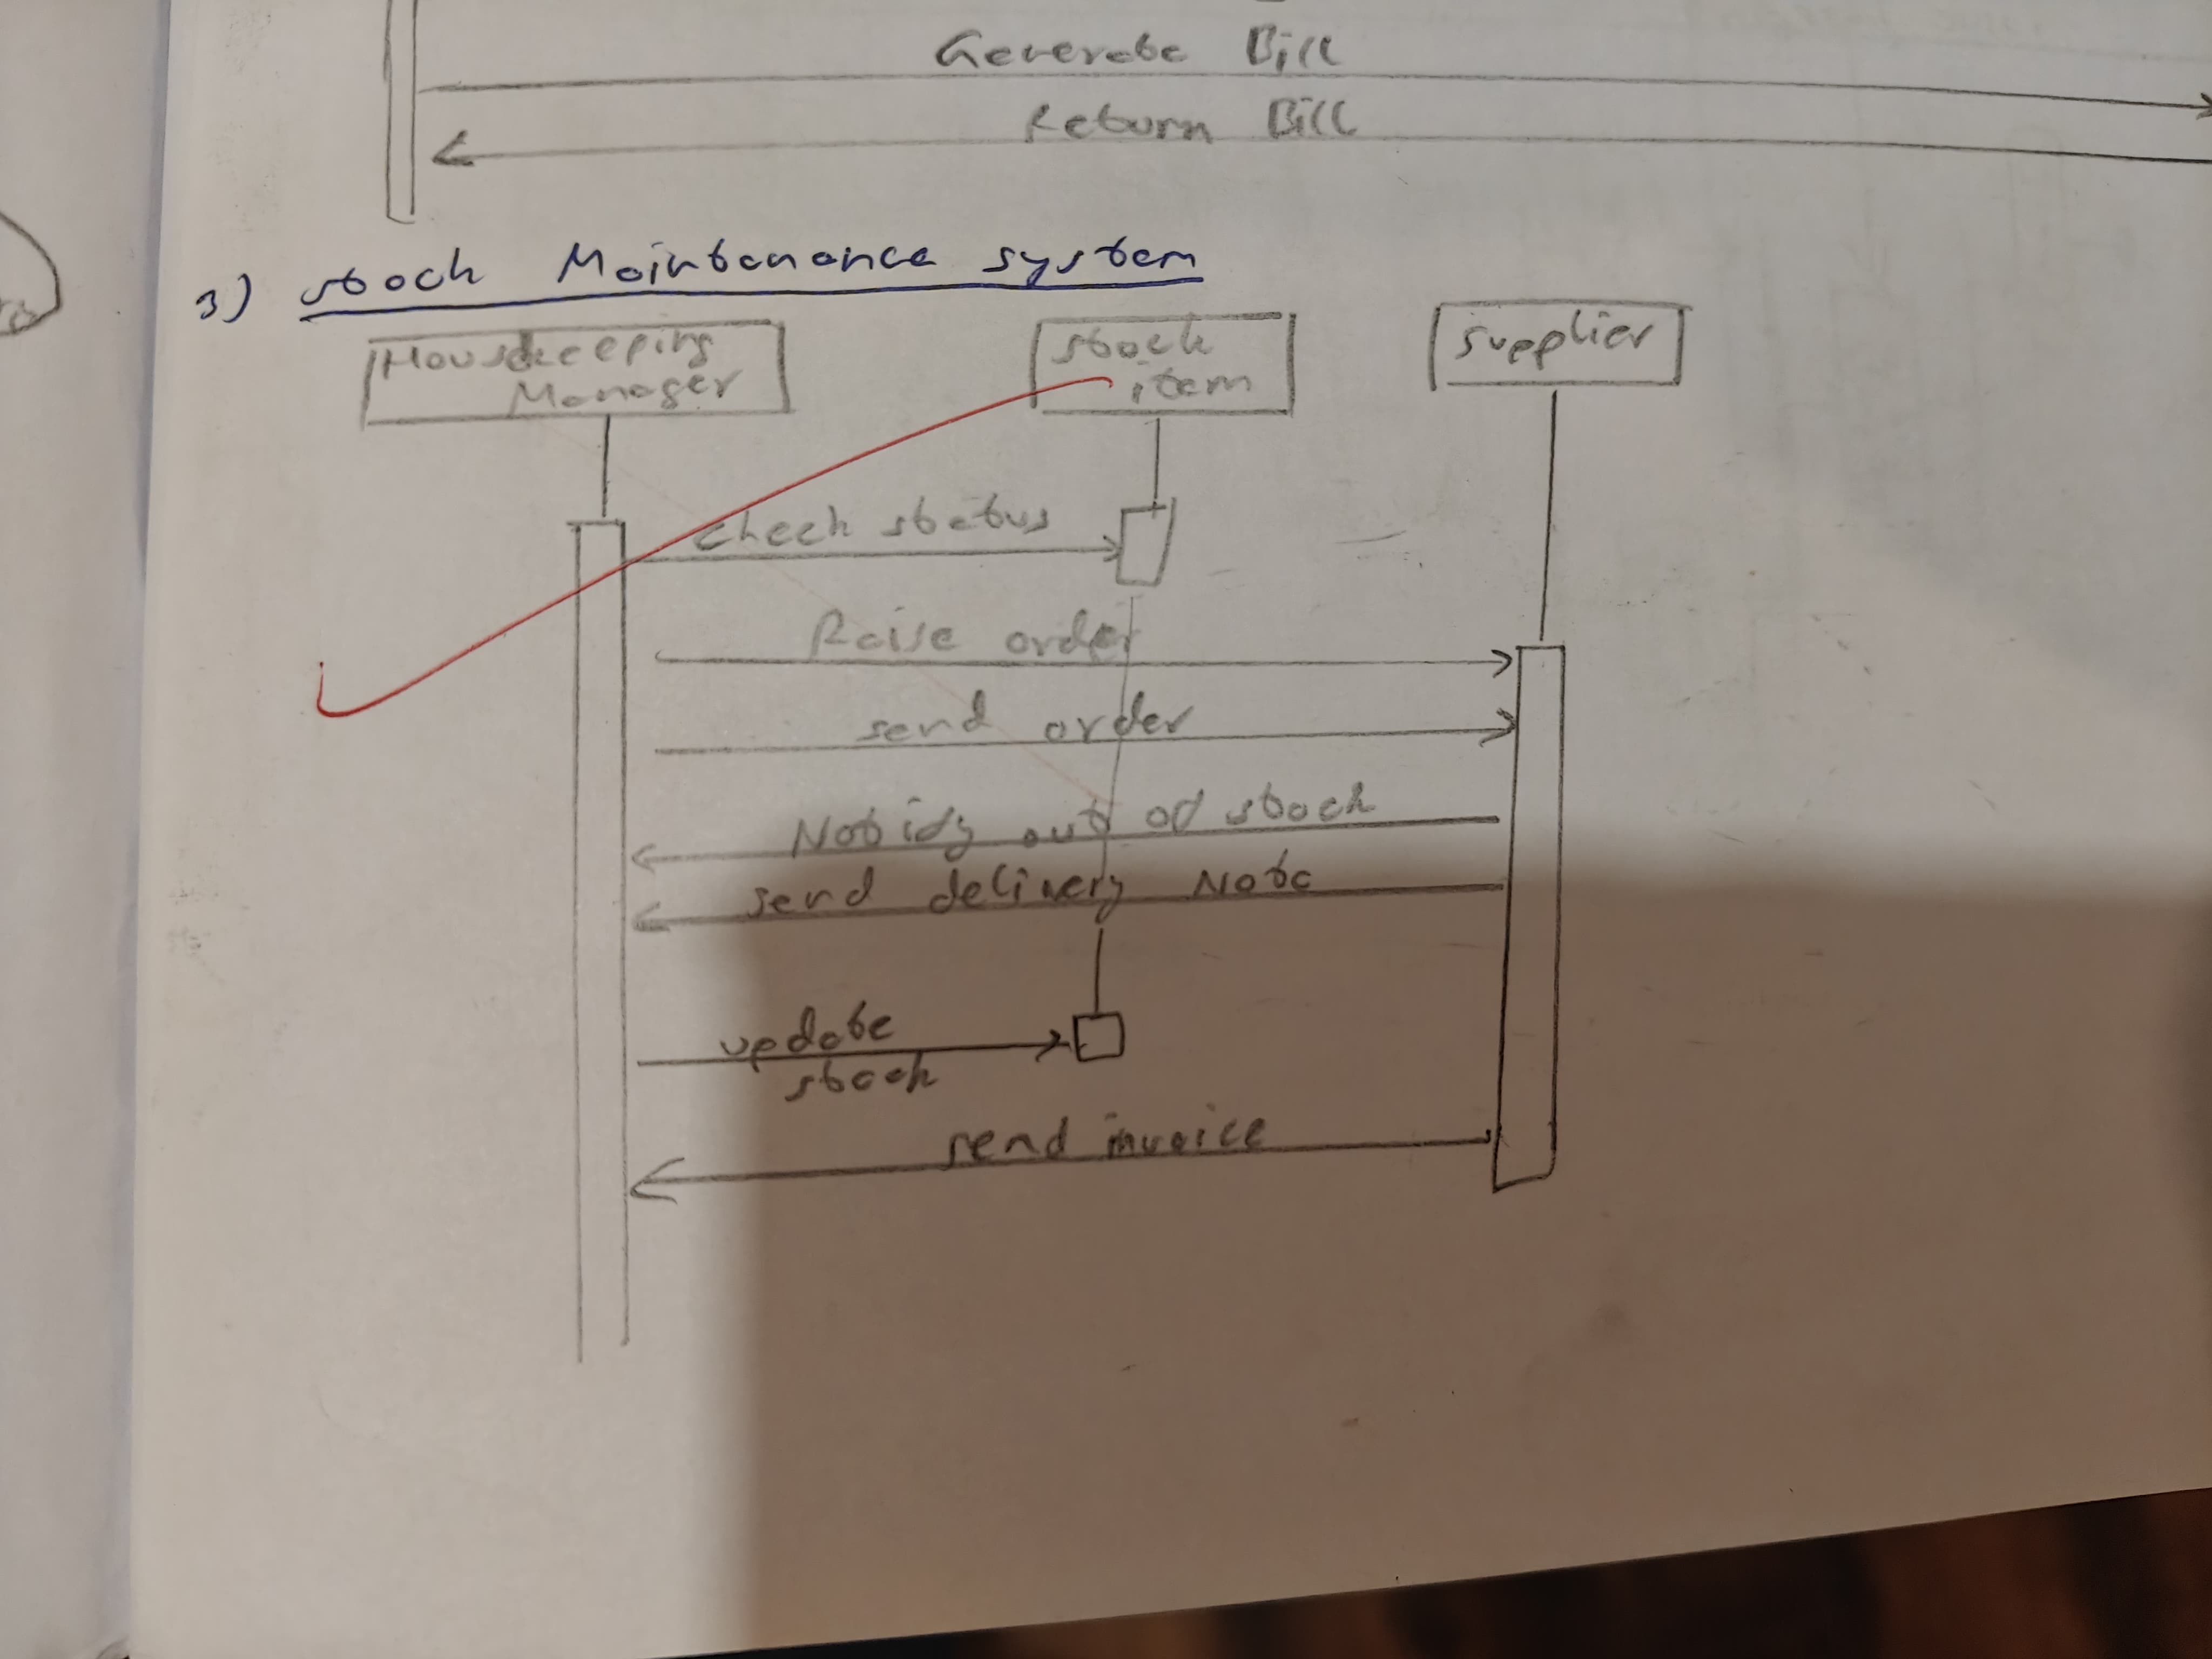 Generate Bill
Return Bill
3) Stock Maintenance system
Housekeeping
Manager
Stock
item
Supplier
check status
Raise order
send order
Notify out of stock
send delivery Note
update
stock
send invoice